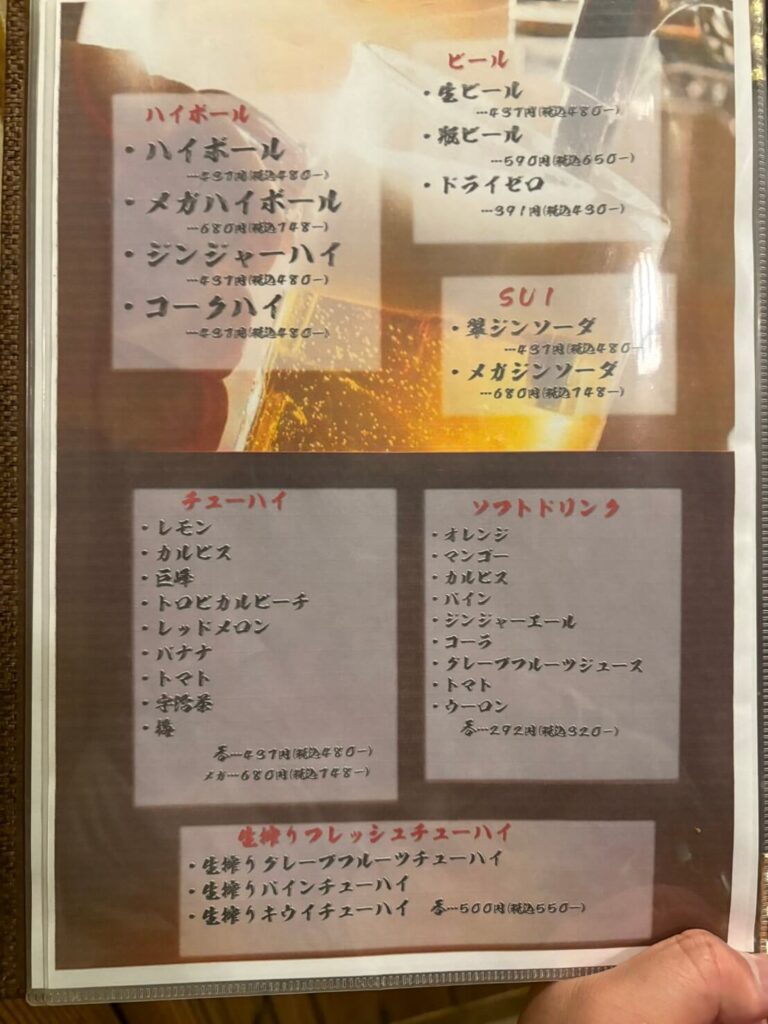 ハイボール
・ハイボール
…437円(税込480-)
・メガハイボール
…680円(税込748-)
・ジンジャーハイ
…437円(税込480-)
・コークハイ
…437円(税込480-)
ビール
・生ビール
…437円(税込480-)
・瓶ビール
…590円(税込650-)
・ドライゼロ
…391円(税込430-)
SUI
・翠ジンソーダ
…437円(税込480-
・メガジンソーダ
…680円(税込748-)
チューハイ
・レモン
・カルピス
・巨峰
・トロピカルピーチ
・レッドメロン
・バナナ
・トマト
・宇治茶
・梅
各…437円(税込480-)
メガ…680円(税込748-)
ソフトドリンク
・オレンジ
・マンゴー
・カルピス
・パイン
・ジンジャーエール
・コーラ
・グレープフルーツジュース
・トマト
・ウーロン
各…292円(税込320-)
生搾りフレッシュチューハイ
・生搾りグレープフルーツチューハイ
・生搾りパインチューハイ
・生搾りキウイチューハイ 各…500円(税込550-)